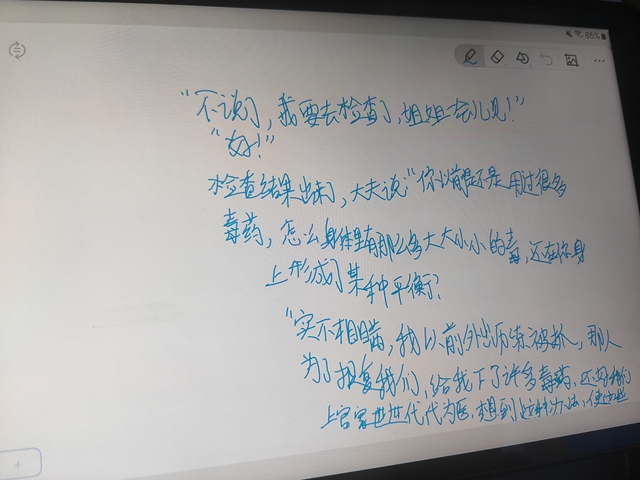 86%
"不说了，我要去检查了，姐姐一会儿见！"
"好！"
检查结果出来了，大夫说："你以前是不是用过很多
毒药，怎么身体里有那么多大大小小的毒，还在你身
上形成了某种平衡？
"实不相瞒，我以前外出历练被抓，那人
为了报复我们，给我下了许多毒药，还好我们
上官家世世代代为医，想到这种办法，使这些